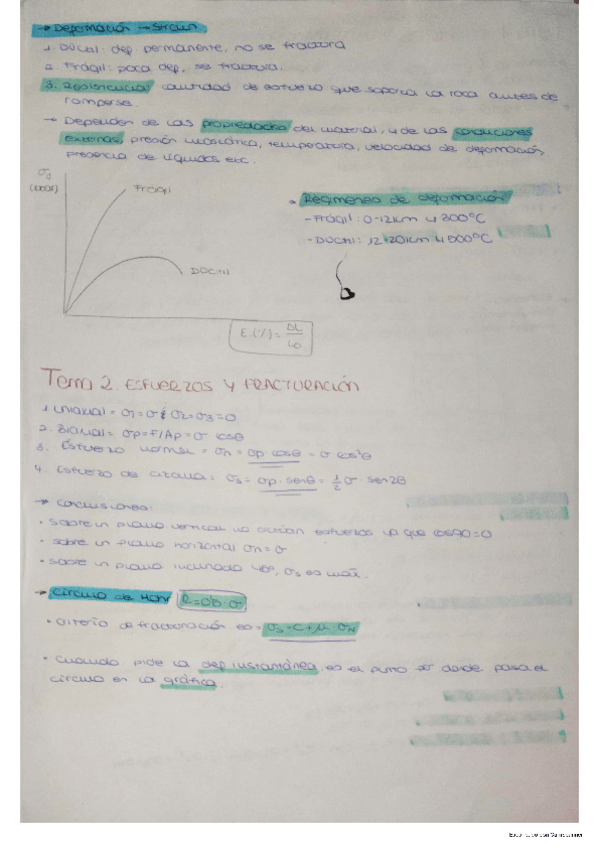 → Deformación → Strain.
1. Dúctil: def permanente, no se fractura
2. Frágil: poca def, se fractura.
3. Resistencia: cantidad de esfuerzo que soporta la roca antes de
romperse.
→ Dependen de las propiedades del material, y de las condiciones
externas, presión litostática, temperatura, velocidad de deformación,
presencia de líquidos etc.
Frágil
Dúctil
• Regímenes de deformación
- Frágil: 0-12km y 300°C
- Dúctil: 12-20km y 500°C
E(%) = ΔL/L0
Tema 2. ESFUERZOS Y FRACTURACIÓN
1. Uniaxial = σ1=σ y σ2=σ3=0
2. Biaxial = σp=F/Ap=σ cosθ
3. Esfuerzo normal = σn = σp·cosθ = σ cos²θ
4. Esfuerzo de cizalla: σs= σp·senθ = 1/2 σ· sen2θ
→ Conclusiones:
• Sobre un plano vertical no actúan esfuerzos ya que cos90=0
• Sobre un plano horizontal σn=σ
• Sobre un plano inclinado 45°, σs es máx.
→ Círculo de Mohr
• Criterio de fracturación es= σs=C+μ·σN
• Cuando pide la def instantánea, es el punto donde pasa el
círculo en la gráfica.